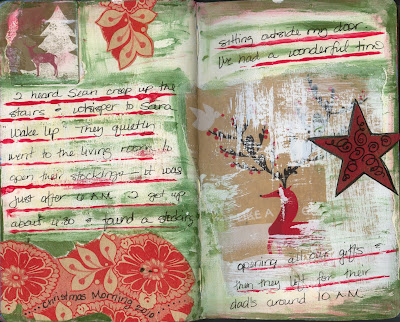 I heard Sean creep up the
stairs & whisper to Sara
Wake Up. They quietly
went to the living room to
open their stockings - it was
just after 4 AM. I get up
about 4:30 & found a stocking
Christmas Morning 2010
sitting outside my door
We had a wonderful time
opening all our gifts &
then they left for their
dad's around 10 AM